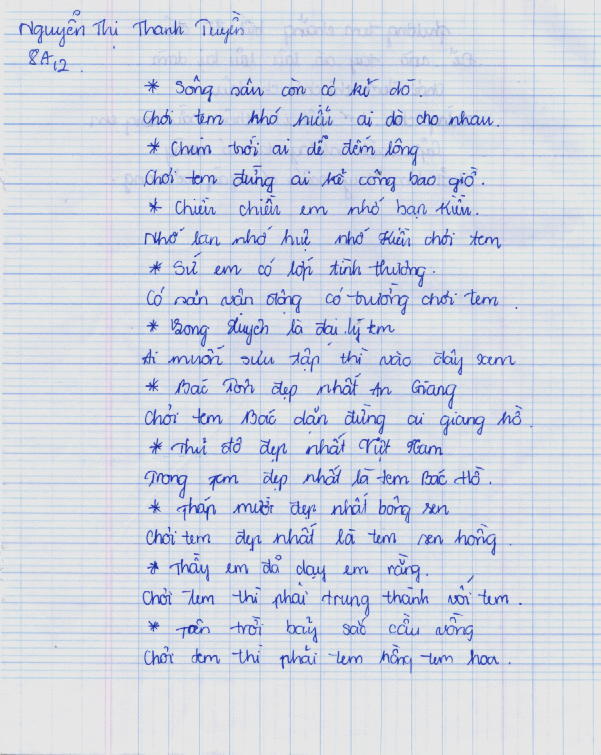 Nguyễn Thị Thanh Tuyền
8A12
* Sông sâu còn có kẻ dò
Chơi tem khó hiểu ai dò cho nhau.
* Chim trời ai dễ đếm lông
Chơi tem đừng ai kể công bao giờ.
* Chiều chiều em nhớ bạn Kiều.
Nhớ lan nhớ huệ nhớ Kiều chơi tem
* Sứ em có lớp tình thương.
Có sân vận động có trường chơi tem.
* Bong Huych là đại lý tem
Ai muốn sưu tập thì vào đây xem
* Bác Tôn đẹp nhất An Giang
Chơi tem Bác dặn đừng ai giang hồ.
* Thủ đô đẹp nhất Việt Nam
Trong tem đẹp nhất là tem Bác Hồ.
* Tháp mười đẹp nhất bông sen
Chơi tem đẹp nhất là tem sen hồng.
* Thầy em đả dạy em rằng.
Chơi tem thì phải trung thành với tem.
* Trên trời bảy sắc cầu vồng
Chơi tem thì phải tem hồng tem hoa.